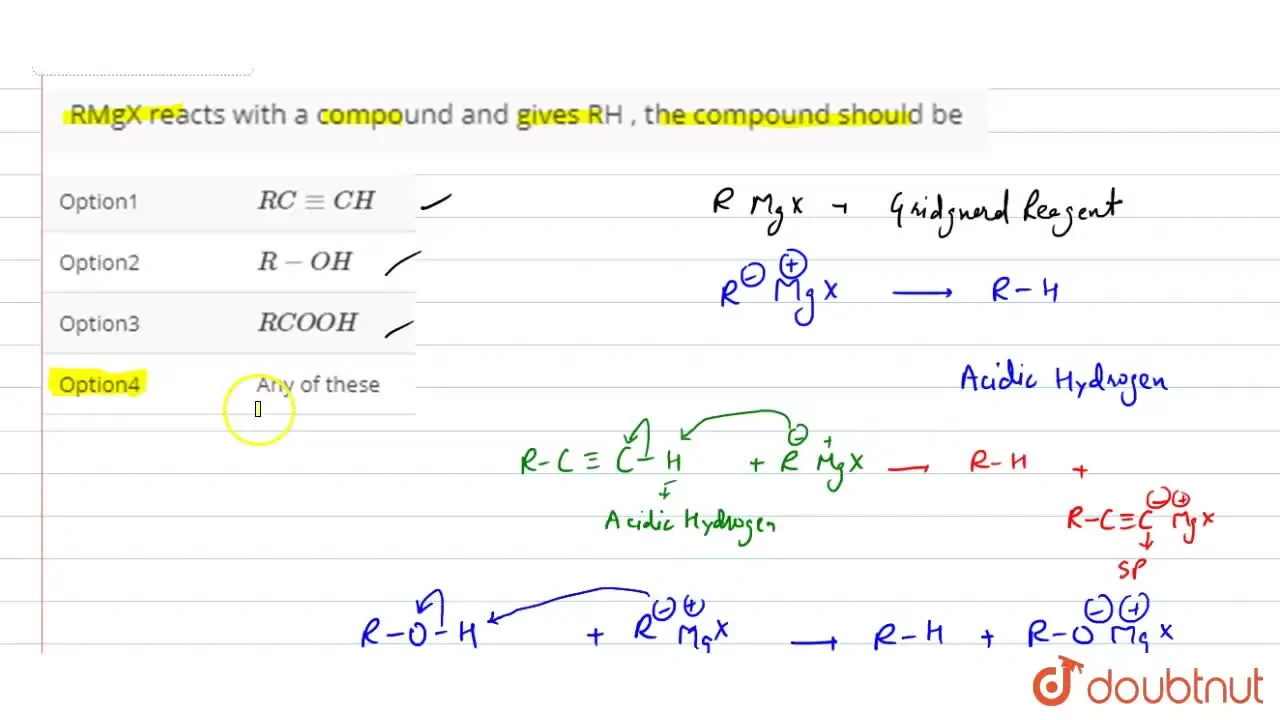 RMgX reacts with a compound and gives RH , the compound should be
Option1 RC ≡ CH
Option2 R − OH
Option3 RCOOH
Option4 Any of these
R MgX → Gridgnerd Reagent
R⊖ ⊕MgX → R−H
Acidic Hydrogen
R−C≡C−H + R⊖ +MgX → R−H +
Acidic Hydrogen
R−C≡C⊖ ⊕MgX
SP
R−O−H + R⊖ ⊕MgX → R−H + R−O⊖ ⊕MgX
doubtnut